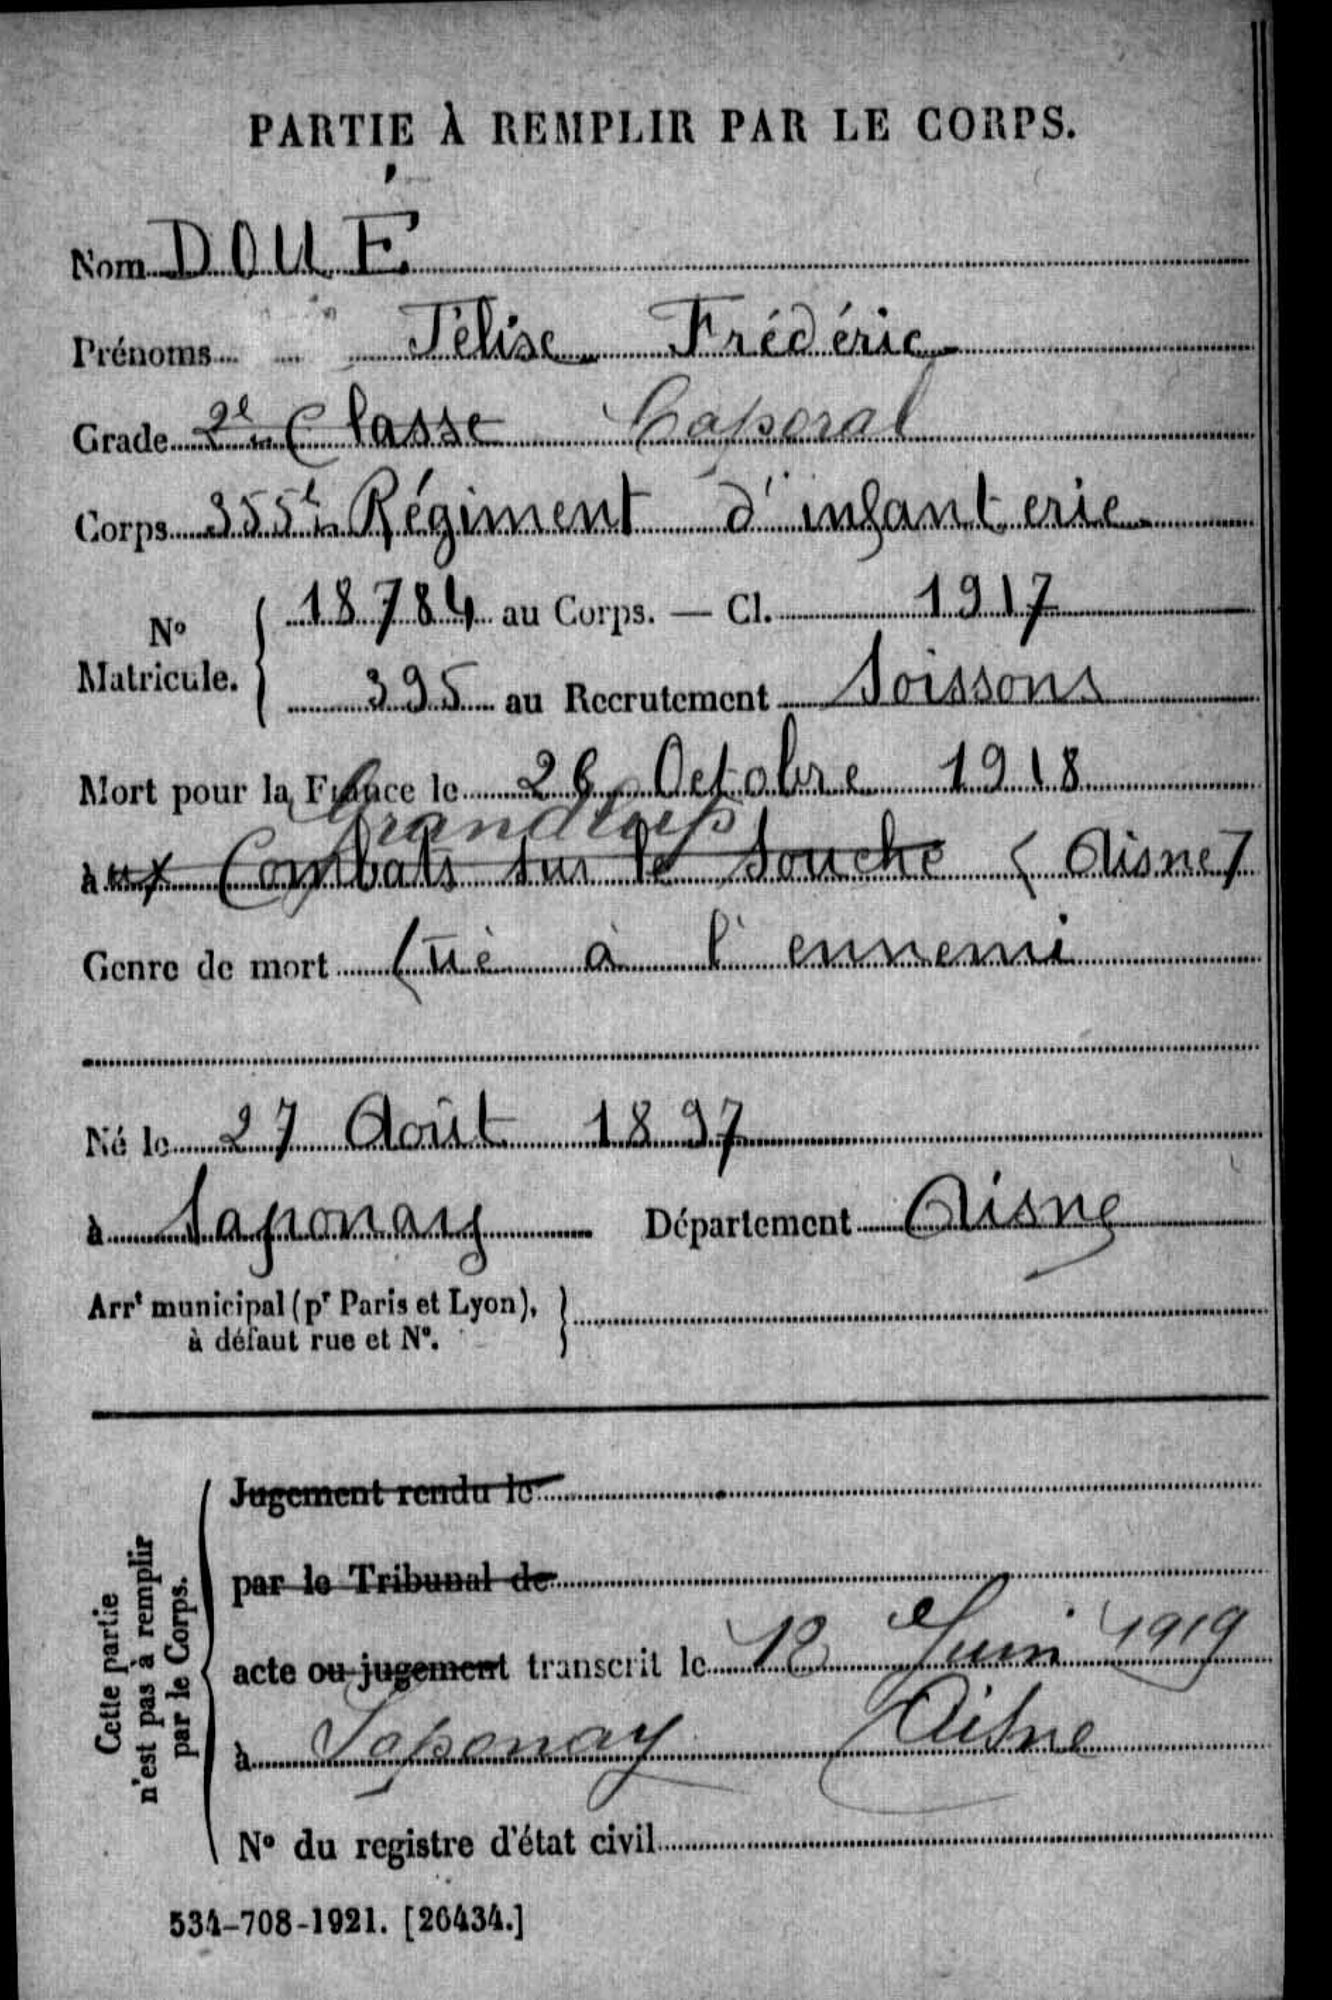 PARTIE À REMPLIR PAR LE CORPS.
Nom DOUÉ
Prénoms Félise Frédéric
Grade 2e Classe Caporal
Corps 355e Régiment d'infanterie
No Matricule. 18784 au Corps. — Cl. 1917
395 au Recrutement Soissons
Mort pour la France le 26 Octobre 1918
Grandlup
aux Combats sur le Souche (Aisne)
Genre de mort tué à l'ennemi
Né le 27 Août 1897
à Saponay Département Aisne
Arrt municipal (pr Paris et Lyon),
à défaut rue et No.
Cette partie
n'est pas à remplir
par le Corps.
Jugement rendu le
par le Tribunal de
acte ou jugement transcrit le 12 Juin 1919
à Saponay Aisne
No du registre d'état civil
534-708-1921. [26434.]